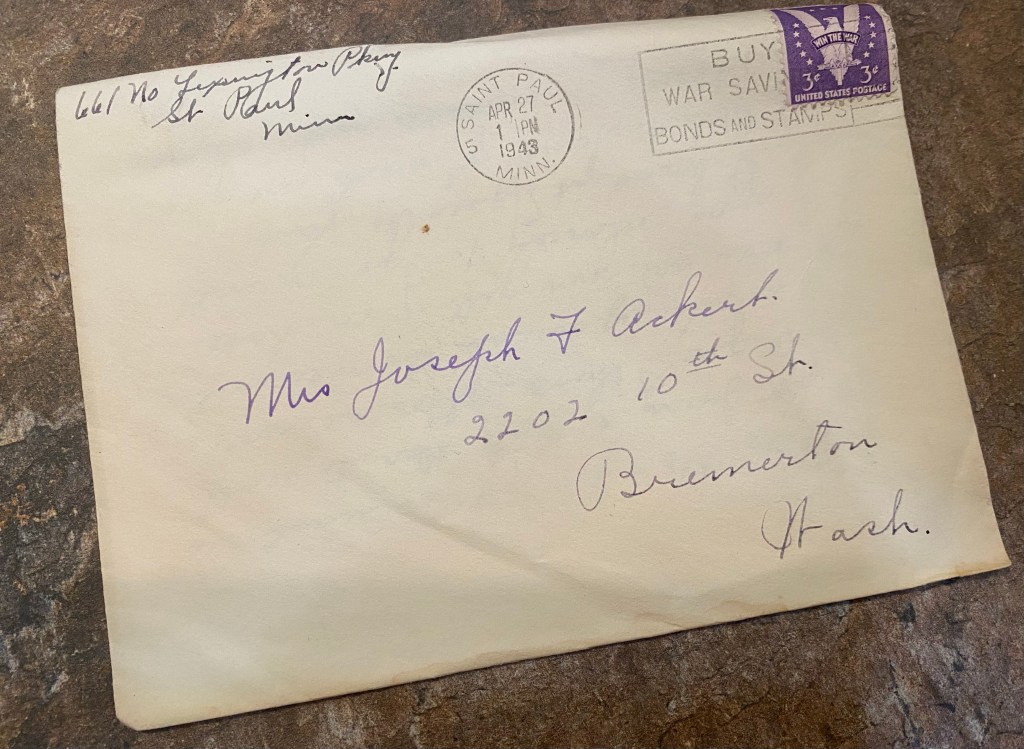 661 No Lexington Pkwy
St Paul
Minn
SAINT PAUL
APR 27
1 PM
1943
5 MINN.
BUY
WAR SAVI
BONDS AND STAMPS
WIN THE WAR
3¢ 3¢
UNITED STATES POSTAGE
Mrs Joseph F Ackert.
2202 10th St.
Bremerton
Wash.